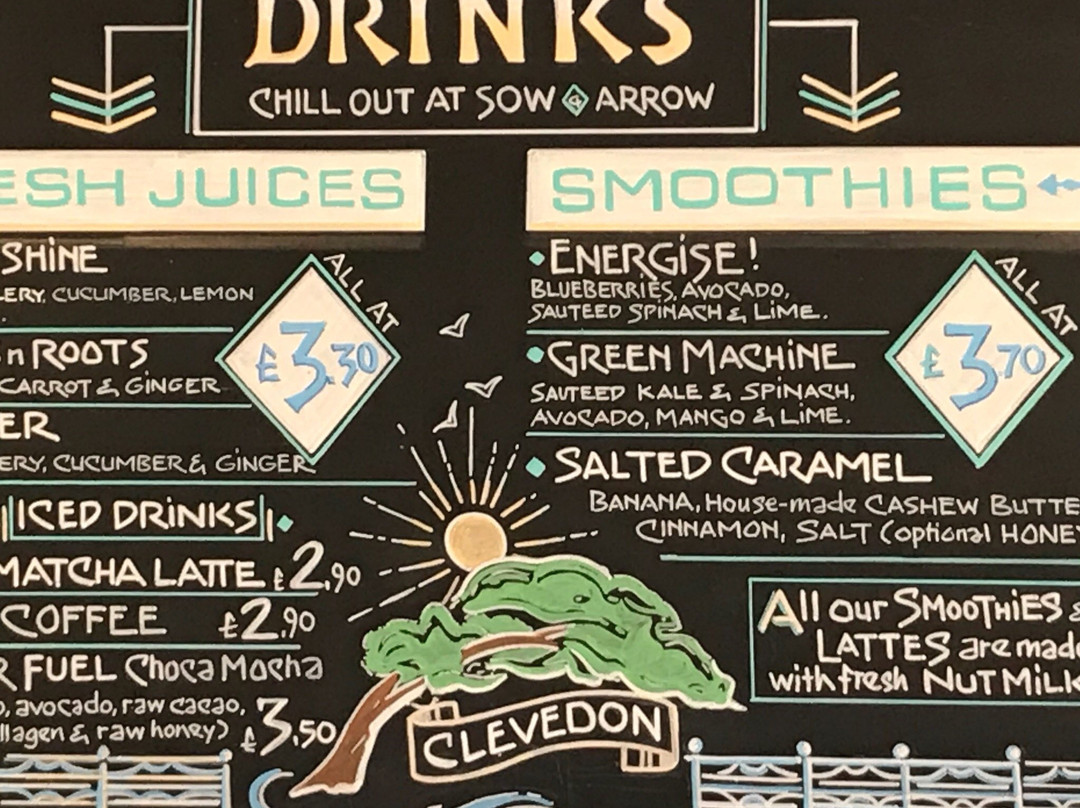 DRINKS
CHILL OUT AT SOW & ARROW
ESH JUICES
SHINE
ERY, CUCUMBER, LEMON
ALL AT
£3.30
n ROOTS
CARROT & GINGER
ER
ERY, CUCUMBER & GINGER
ICED DRINKS
MATCHA LATTE £2.90
COFFEE £2.90
R FUEL Choca Mocha
o, avocado, raw cacao,
llagen & raw honey) £3.50
SMOOTHIES
ENERGISE!
BLUEBERRIES, AVOCADO,
SAUTEED SPINACH & LIME.
ALL AT
£3.70
GREEN MACHINE
SAUTEED KALE & SPINACH,
AVOCADO, MANGO & LIME.
SALTED CARAMEL
BANANA, House-made CASHEW BUTTE
CINNAMON, SALT (optional HONEY
All our SMOOTHIES &
LATTES are made
with fresh NUT MILK
CLEVEDON